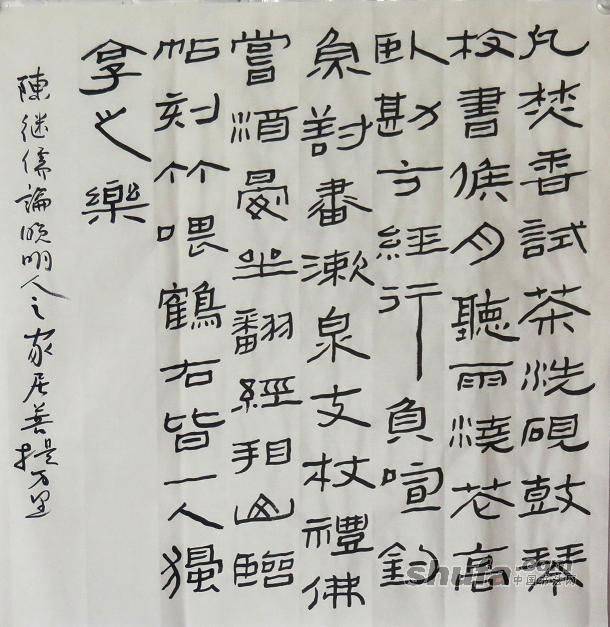 凡焚香試茶洗硯鼓琴
校書候月聽雨澆花高
臥勘方經行負喧釣
魚對畫漱泉支杖禮佛
嘗酒晏坐翻經看山臨
帖刻竹喂鶴右皆一人獨
享之樂
陳继儒論晚明人之家居菩提万里
shufa.com
中国书法网